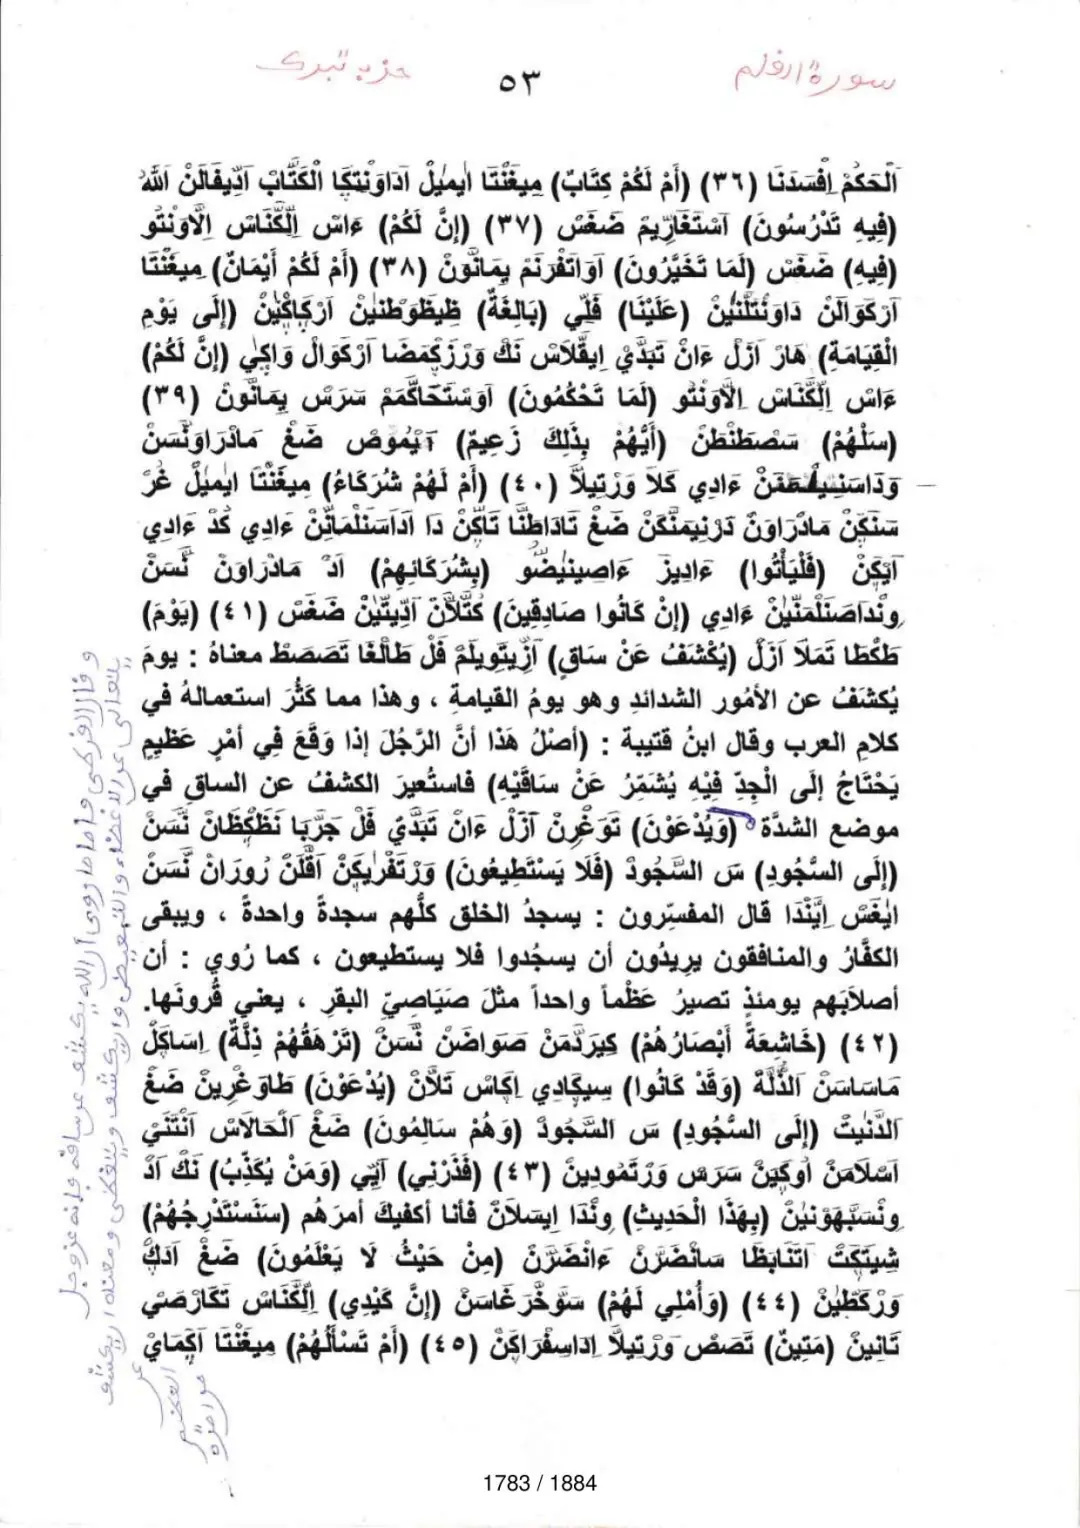 سورة القلم
٥٣
حزب تبرك
اَلْحَكُمْ اِفْسَدَنَا (٣٦) (أَمْ لَكُمْ كِتَابٌ) مِيغَنْتَا اَيمِيلْ اَدَاوَنْتَكَا الْكَتَّابْ اَدِّيفَالَنْ اللهُ
(فِيهِ تَدْرُسُونَ) اَسْتَغَارِّيمْ ضَغَسْ (٣٧) (إِنَّ لَكُمْ) ءَاسْ اِلَّكْنَاسْ اِلَّاوَنْتُو
(فِيهِ) ضَغَسْ (لَمَا تَخَيَّرُونَ) اَوَاتَفْرَنَمْ يِمَانُّونْ (٣٨) (أَمْ لَكُمْ أَيْمَانٌ) مِيغَنْتَا
اَرْكَوَالَنْ دَاوَنْتَلْنَيْنْ (عَلَيْنَا) فَلِّي (بَالِغَةٌ) ظِيظَوَطْنَيْنْ اَرْكَاكْيَنْ (إِلَى يَوْمِ
الْقِيَامَةِ) هَارْ اَزَلْ ءَانْ تَبَدَّيْ اِيقَلاَسْ نَكْ وَرْزَكِمَضَا اَرْكَوَالْ وَاكِي (إِنَّ لَكُمْ)
ءَاسْ اِلَّكْنَاسْ اِلَّاوَنْتُو (لَمَا تَحْكُمُونَ) اَوَسْتَحَاكَّمَمْ سَرَسْ يِمَانُّونْ (٣٩)
(سَلْهُمْ) سَصْطَنْطَنْ (أَيُّهُمْ بِذَلِكَ زَعِيمٌ) اَيْمُوصْ ضَغْ مَادْرَاوَنَّسَنْ
ءَادِي كَلَا وَرْتِيلاَّ (٤٠) (أَمْ لَهُمْ شُرَكَاءُ) مِيغَنْتَا اَيمِيلْ غُرْ
سَنَكَنْ مَادْرَاوَنْ دَرْنِيمَنْكَنْ ضَغْ تَادَاطْنَّا تَاكَنْ دَا اَدَاسَنْلْمَانَّنْ ءَادِي كُدْ ءَادِي
اَيْكَنْ (فَلْيَأْتُوا) ءَادِيزْ ءَاصِينِيْضُو (بِشُرَكَائِهِمْ) اَدْ مَادْرَاوَنْ نَّسَنْ
وِنْدَاصَنْلْمَنَّيْنْ ءَادِي (إِنْ كَانُوا صَادِقِينَ) كَتَّلاَنْ اَدِّيتَيْنْ ضَغَسْ (٤١) (يَوْمَ)
طَكْطَا تَمَلاَ اَزَلْ (يُكْشَفُ عَنْ سَاقٍ) اَزِّيتَويلَمْ فَلْ طَالْغَا تَصَصَطْ معناهُ : يومَ
يُكشَفُ عن الأمُور الشدائدِ وهو يومُ القيامةِ ، وهذا مما كَثُرَ استعمالهُ في
كلامِ العرب وقال ابنُ قتيبة : (أصلُ هَذا أنَّ الرَّجُلَ إذا وَقَعَ فِي أمْرٍ عَظِيمٍ
يَحْتَاجُ إلَى الْجِدِّ فِيْهِ يُشَمِّرُ عَنْ سَاقَيْهِ) فاستُعيرَ الكشفُ عن الساقِ في
موضع الشدَّة (وَيُدْعَوْنَ) تَوَغِرِنْ اَزَلْ ءَانْ تَبَدَّيْ فَلْ جَرَّبَا نَظَكِظَانْ نَّسَنْ
(إِلَى السُّجُودِ) سَ السَّجُودْ (فَلَا يَسْتَطِيعُونَ) وَرْتَفْرَيكَنْ اَفَّلَنْ رُورَانْ نَّسَنْ
اَيغَسْ اِيَّنْدَا قال المفسِّرون : يسجدُ الخلق كلُّهم سجدةً واحدةً ، ويبقى
الكفَّارُ والمنافقون يريدُون أن يسجُدوا فلا يستطيعون ، كما رُوي : أن
أصلاَبَهم يومئذٍ تصيرُ عَظْماً واحداً مثلَ صَيَاصِيِّ البقرِ ، يعني قُرونَها.
(٤٢) (خَاشِعَةً أَبْصَارُهُمْ) كِيرَدَّمَنْ صَوَاضَنْ نَّسَنْ (تَرْهَقُهُمْ ذِلَّةٌ) اِسَاكَلْ
مَاسَاسَنْ الذُّلَّةْ (وَقَدْ كَانُوا) سِيكَادِي اِكَاسْ تَلاَّنْ (يُدْعَوْنَ) طَاوَغْرِينْ ضَغْ
الدَّنْيتْ (إِلَى السُّجُودِ) سَ السَّجُودْ (وَهُمْ سَالِمُونَ) ضَغْ اَلْحَالاَسْ اَنْتَنَيْ
اَسْلاَمَنْ اُوكَيَنْ سَرَسْ وَرْتَمُودِينْ (٤٣) (فَذَرْنِي) اَيِّي (وَمَنْ يُكَذِّبُ) نَكْ اَدْ
وِنْسَبَّهَوْنَيْنْ (بِهَذَا الْحَدِيثِ) وِنْدَا اِيسَلاَنْ فأنا أكفيكَ أمرَهُم (سَنَسْتَدْرِجُهُمْ)
شِيتَكِتْ اَتَنَابَظَا سَانْضَرَنْ ءَانْضَرَنْ (مِنْ حَيْثُ لَا يَعْلَمُونَ) ضَغْ اَدَكْ
وَرْكَطَيَنْ (٤٤) (وَأُمْلِي لَهُمْ) سَوْخَّرَغَاسَنْ (إِنَّ كَيْدِي) اِلَّكْنَاسْ تَكَارَصَيْ
تَانِينْ (مَتِينٌ) تَصَصْ وَرْتِيلاَّ اِدَاسِفْرَاكَنْ (٤٥) (أَمْ تَسْأَلُهُمْ) مِيغَنْتَا اَكْمَايْ
1783 / 1884